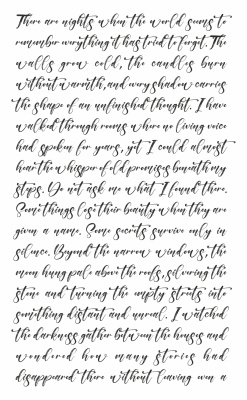 There are nights when the world seems to
remember everything it has tried to forget. The
walls grow cold, the candles burn
without warmth, and every shadow carries
the shape of an unfinished thought. I have
walked through rooms where no living voice
had spoken for years, yet I could almost
hear the whisper of old promises beneath my
steps. Do not ask me what I found there.
Some things lose their beauty when they are
given a name. Some secrets survive only in
silence. Beyond the narrow windows, the
moon hung pale above the roofs, silvering the
stone and turning the empty streets into
something distant and unreal. I watched
the darkness gather between the houses and
wondered how many stories had
disappeared there without leaving even a